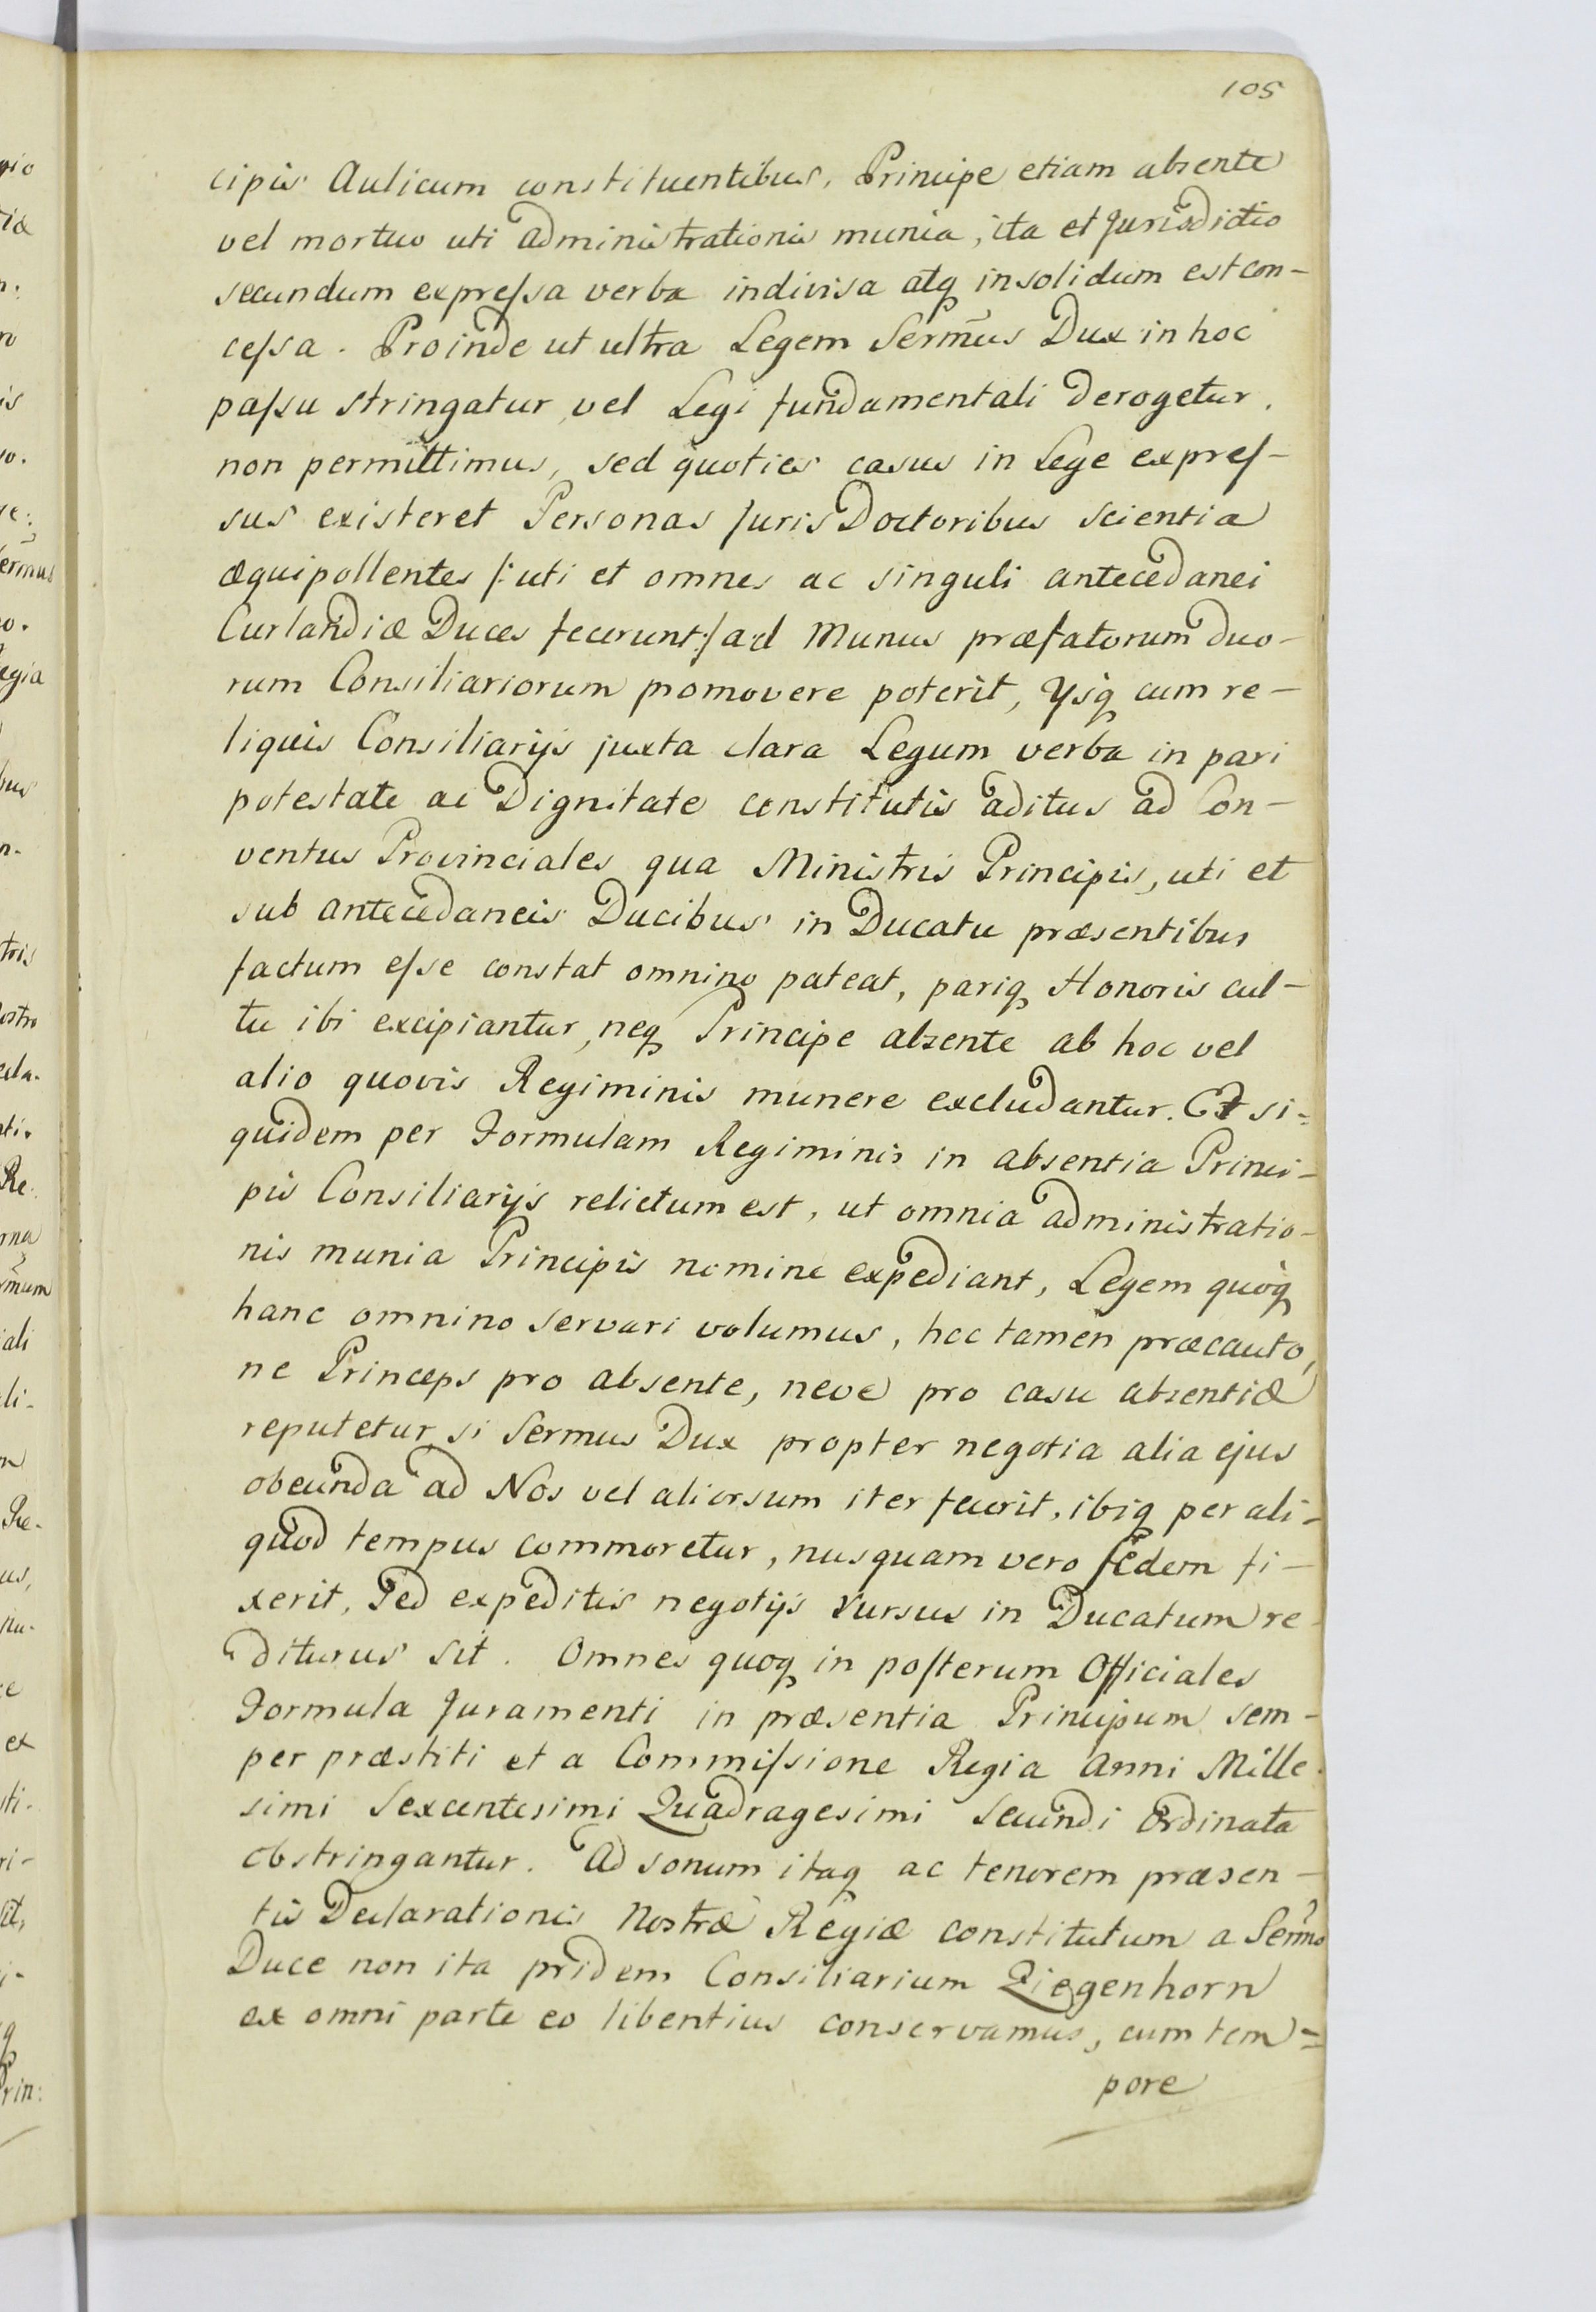 105
cipis Aulicum constituentibus, Principe etiam absente
vel mortuo uti administrationis munia, ita et Jurisdictio
secundum expreſsa verba indivisa atq insolidum est con-
ceſsa. Proinde ut ultra Legem Sermũs Dux in hoc
paſsu stringatur, vel Legi fundamentali derogetur,
non permittimus, sed quoties casus in Lege expreſ-
sus existeret Personas Juris Doctoribus scientia
æquipollentes /: uti et omnes ac singuli antecedanei
Curlandiæ Duces fecerunt :/ ad Munus præfatorum duo-
rum Consiliariorum promovere poterit, Ysq cum re-
liquis Consiliarijs juxta clara Legum verba in pari
potestate ac Dignitate constitutis aditus ad Con-
ventus Provinciales qua Ministris Principis, uti et
sub antecedaneis Ducibus in Ducatu præsentibus
factum eſse constat omnino pateat, pariq Honoris cul-
tu ibi excipiantur, neq Principe absente ab hoc vel
alio quovis Regiminis munere excludantur. Et si=
quidem per Formulam Regiminis in absentia Princi-
pis Consiliarijs relictum est, ut omnia administratio-
nis munia Principis nomine expediant, Legem quoq
hanc omnino servari volumus, hoc tamen præcauto,
ne Princeps pro absente, neve pro casu absentiæ
reputetur, si Sermus Dux propter negotia alia ejus
obeunda ad Nos vel aliorsum iter fecerit, ibiq per ali=
quod tempus commoretur, nusquam vero sedem fi-
xerit, sed expeditis negotijs rursus in Ducatum re-
diturus sit. Omnes quoq in poſterum Officiales
Formula Juramenti in præsentia Principum sem-
per præstiti et a Commiſsione Regia Anni Mille-
simi Sexcentesimi Quadragesimi Secundi Ordinata
obstringantur. Ad sonum itaq ac tenorem præsen-
tis Declarationis Nostræ Regiæ constitutum a Serm̃o
Duce non ita pridem Consiliarium Ziegenhorn
ex omni parte eo libentius conservamus, cum tem=
pore